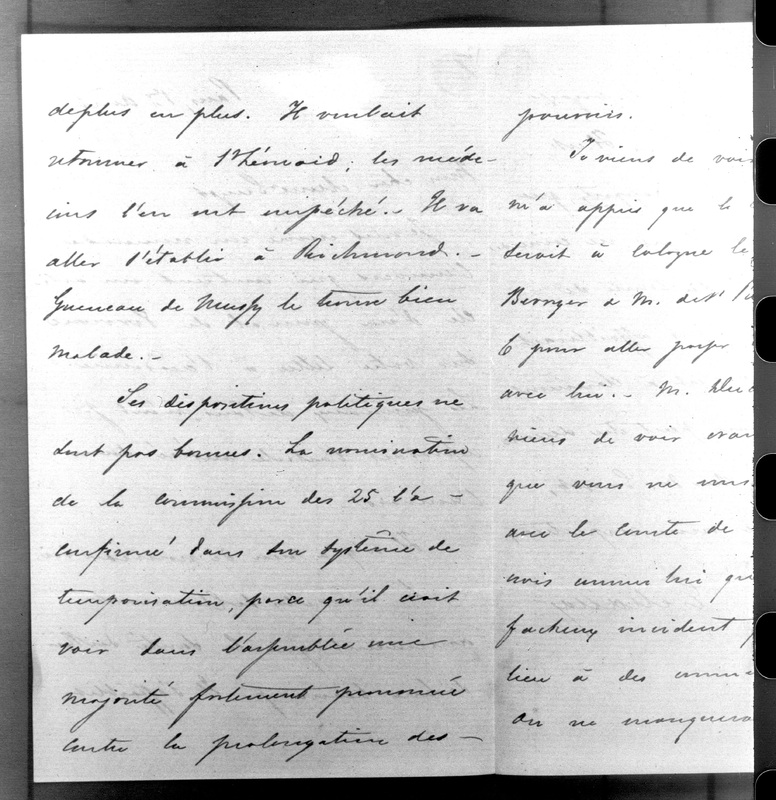 deplus en plus. Il voulait
retourner à St Léonard; les méde-
cins l'en ont empêché. - Il va
aller s'établir à Richmond. -
Gueneau de Mussy le trouve bien
malade. -
Ses dispositions politiques ne
sont pas bonnes. La nomination
de la commission des 25 l'a -
confirmé dans son système de
temporisation, parce qu'il croit
voir dans l'assemblée une
majorité fortement prononcée
contre la prolongation des -
pourris.
Je viens de voir
m'a appris que le
seroit à Cologne le
Berryer à M. de St
6 pour aller passer
avec lui. - M.
viens de voir
que vous ne
avec le Comte de
vois comme lui que
facheux incident
lieu à des
on ne manquera